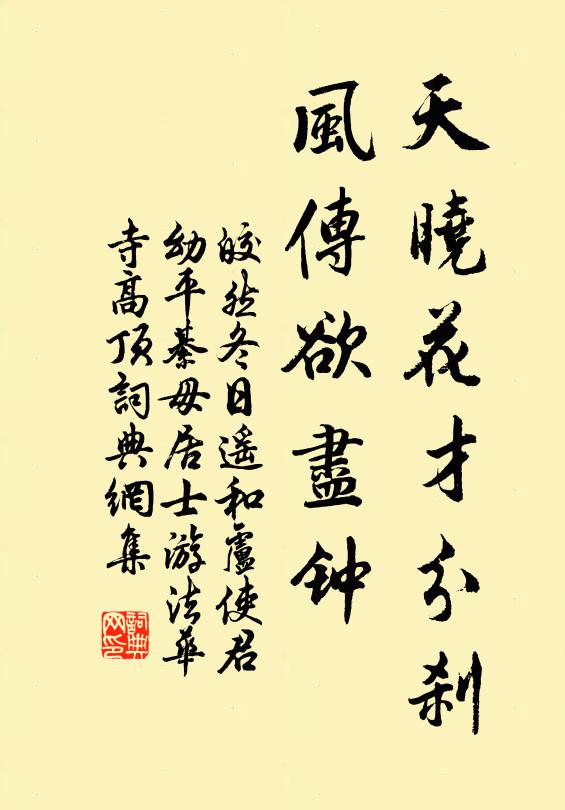 天曉花才分刹
風傳欲盡钟
皎然冬日遥和盧使君
幼平綦毋居士游法華
寺高頂詞典網集
詞典
网印